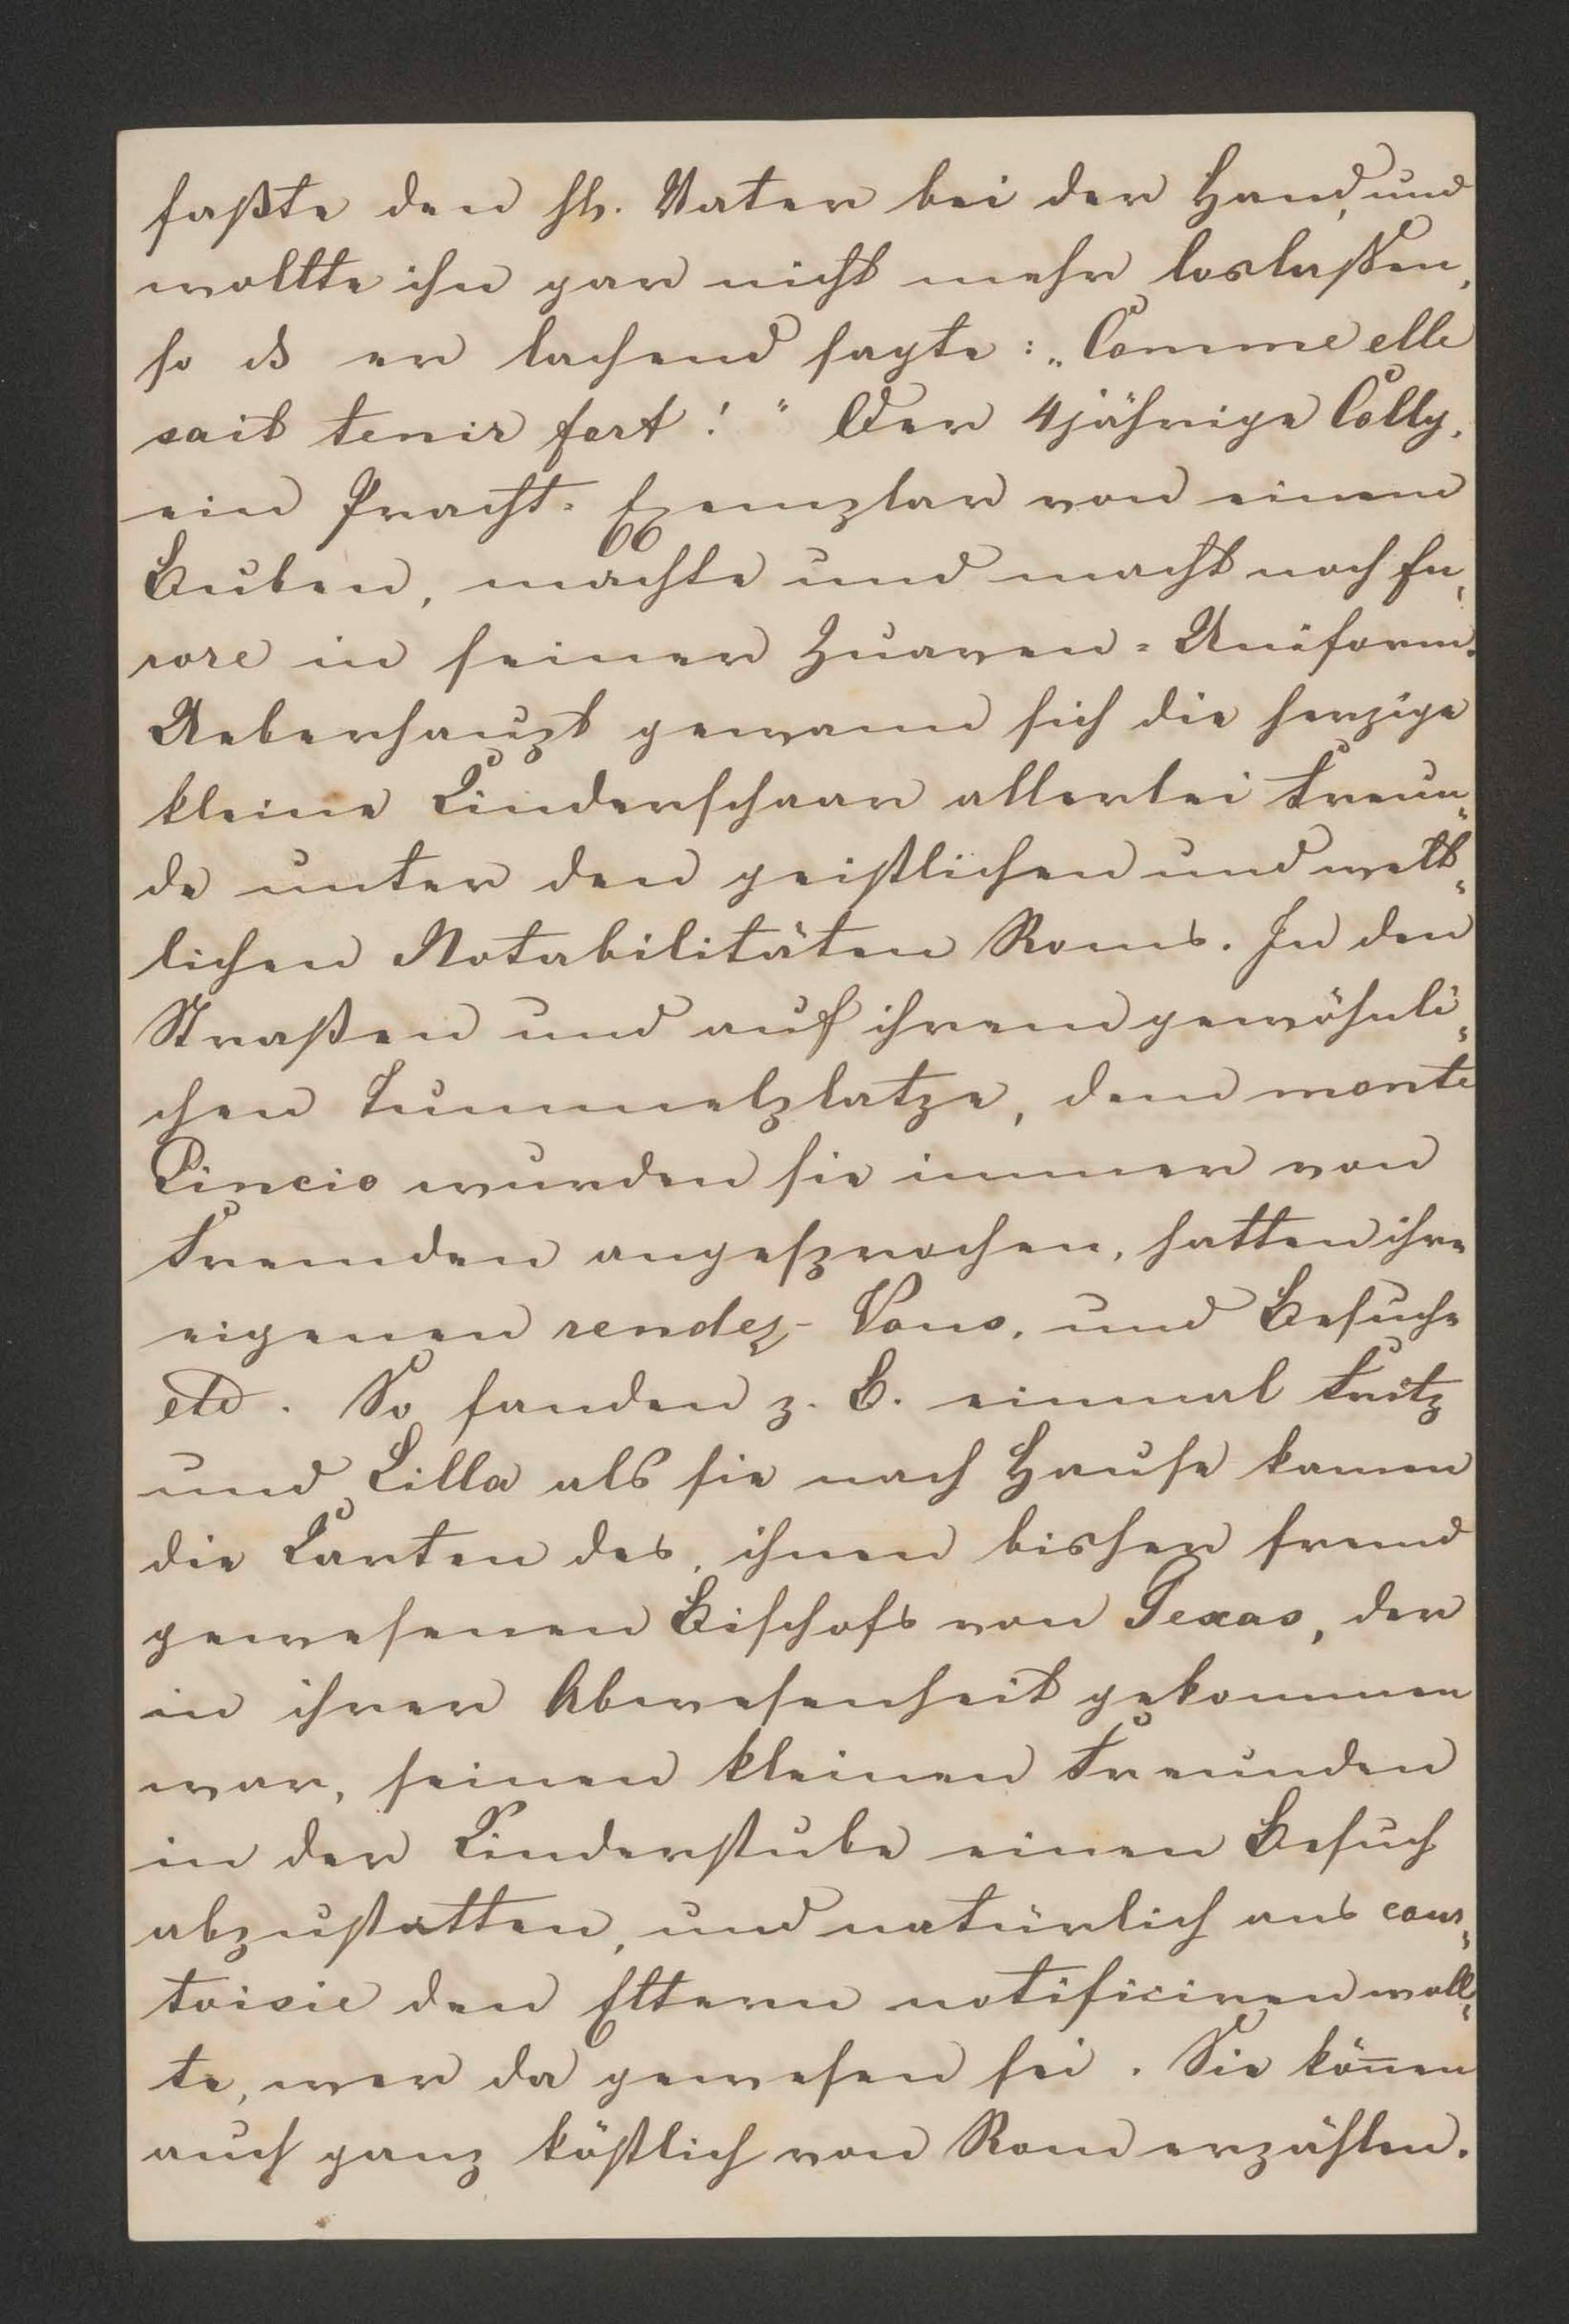 faßte den hl. Vater bei der Hand, und
wollte ihn gar nicht mehr loslaßen,
so ds er lachend sagte: „Comme elle
sait tenir fort!“ Der 4jährige Colly,
ein Pracht-Exemplar von einem
Buben, machte und macht noch fu-
rore in seiner Zuaven-Uniform.
Ueberhaupt gewann sich die herzige
kleine Kinderschaar allerlei Freun-
de unter den geistlichen und welt-
lichen Notabilitäten Roms. In den
Straßen und auf ihrem gewöhnli-
chen Tummelplatze, dem monte
Pincio wurden sie immer von
Fremden angesprochen, hatten ihre
eigenen rendez-Vous, und Besuche
etc. So fanden z. B. einmal Fritz
und Lilla als sie nach Hause kamen
die Karten des, ihnen bisher fremd
gewesenen Bischofs von Texas, der
in ihrer Abwesenheit gekommen
war, seinen kleinen Freunden
in der Kinderstube einen Besuch
abzustatten, und natürlich aus cour-
toisie den Eltern notificiren woll-
te, wer da gewesen sei. Sie kön̄en
auch ganz köstlich von Rom erzählen.